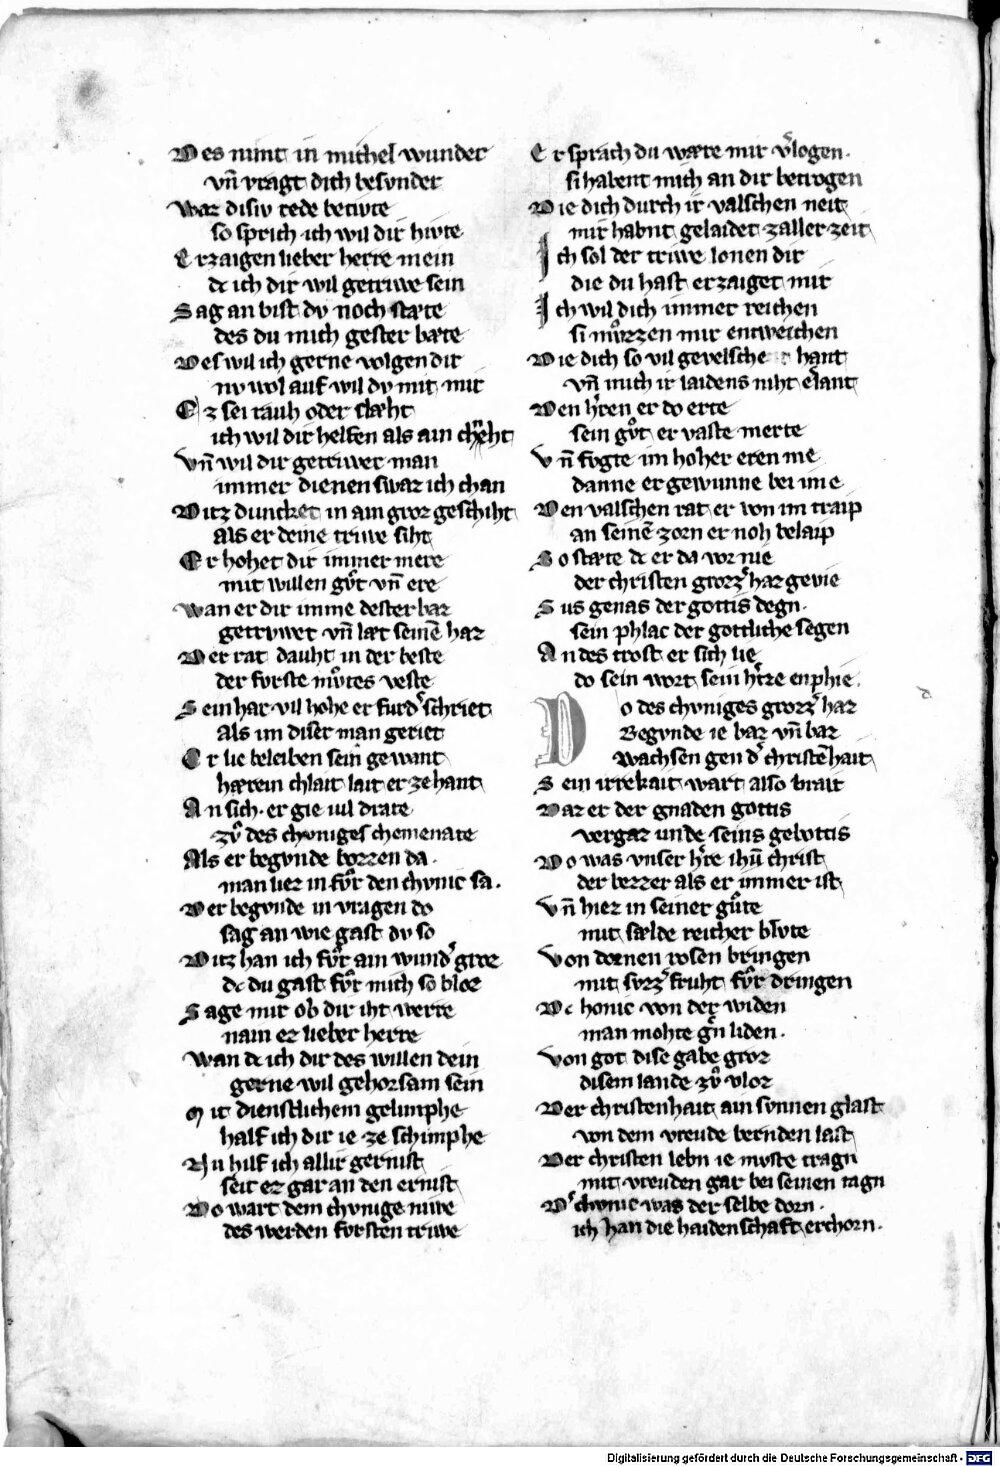 Des nimt in michel wunder
vn̄ vragt dich besvnder
Waz disiv rede betivte
so sprich ich wil dir hivte
Erzaigen lieber herre mein
dc ich dir wil getriwe sein
Sag an bist dv noch stæte
des du mich gester bæte
Des wil ich gerne volgen dir
nv wol auf wil dv mit mir
Ez sei rauh oder slæht
ich wil dir helfen als ain chneht
Vn̄ wil dir getriwer man
immer dienen swaz ich chan
Ditz duncket in ain groz geschiht
als er deine triwe siht
Er hohet dir immer mere
mit willen gv̊t vn̄ ere
Wan er dir imme dester baz
getrvwet vn̄ læt seinē haz
Der rat dauht in der beste
der fvrste mv̊tes veste
Sein har vil hohe er furd᷑ schriet
Als im diser man geriet
Er lie beleiben sein gewant
hærein chlait lait er ze hant
An sich. er gie vil drate
zv̊ des chvniges chemenate
Als er begvnde bozzen da.
man liez in fv̊r den chvnic sa.
Der begvnde in vragen do
sag an wie gast dv so
Ditz han ich fv̊r ain wund᷑ groz
dc du gast fv̊r mich so bloz
Sage mir ob dir iht werre
nain ez lieber herre
Wan dc ich dir des willen dein
gerne wil gehorsam sein
Mit dienstlichem gelimphe
half ich dir ie ze schimphe
Nu hilf ich allir gernist
seit ez gar an den ernist
Do wart dem chvnige niwe
des werden fvrsten triwe
Er sprach du wære mir v᷑logen.
si habent mich an dir betrogen
Die dich durch ir valschen neit
mir habnt gelaidet zaller zeit
Ich sol der triwe lonen dir
die du hast erzaiget mir
Ich wil dich immer reichen
si mv̊zzen mir entweichen
Die dich so vil gevelschet hant
vn̄ mich ir laidens niht erlant
Den h᷑ren er do erte
sein gv̊t er vaste merte
Vn̄ fvgte im hoher eren me
danne er gewunne bei im e
Den valschen rat er von im traip
an seinē zorn er noh belaip
So stæte dc er da vor nie
der christen grozz᷑ haz gevie
Sus genas der gottis degn.
sein phlac der gottliche segen
An des trost er sich lie
do sein wort sein h᷑rre enphie.
Do des chvniges grozz᷑ haz
Begvnde ie baz vn̄ baz
wachsen gen d᷑ christēhait
Sein irrekait wart also brait
Daz er der gnaden gottis
vergaz unde seins gebottis
Do was vnser h᷑re ihū christ
der bezzer als er immer ist
Vn̄ hiez in seiner gv̊te
mit sælde reicher blv̊te
Von dornen rosen bringen
mit svzz᷑ fruht fv̊r dringen
Dc honic von der widen
man mohte g᷑n liden.
Von got dise gabe groz
disem lande zv̊ vloz
Der christenhait ain svnnen glast
von dem vreude bernden last
Der christen lebn ie mvste tragn
mit vreuden gar bei seinen tagn
D᷑ chvnic was der selbe dorn.
ich han die haidenschaft erchorn.
Digitalisierung gefördert durch die Deutsche Forschungsgemeinschaft - DFG